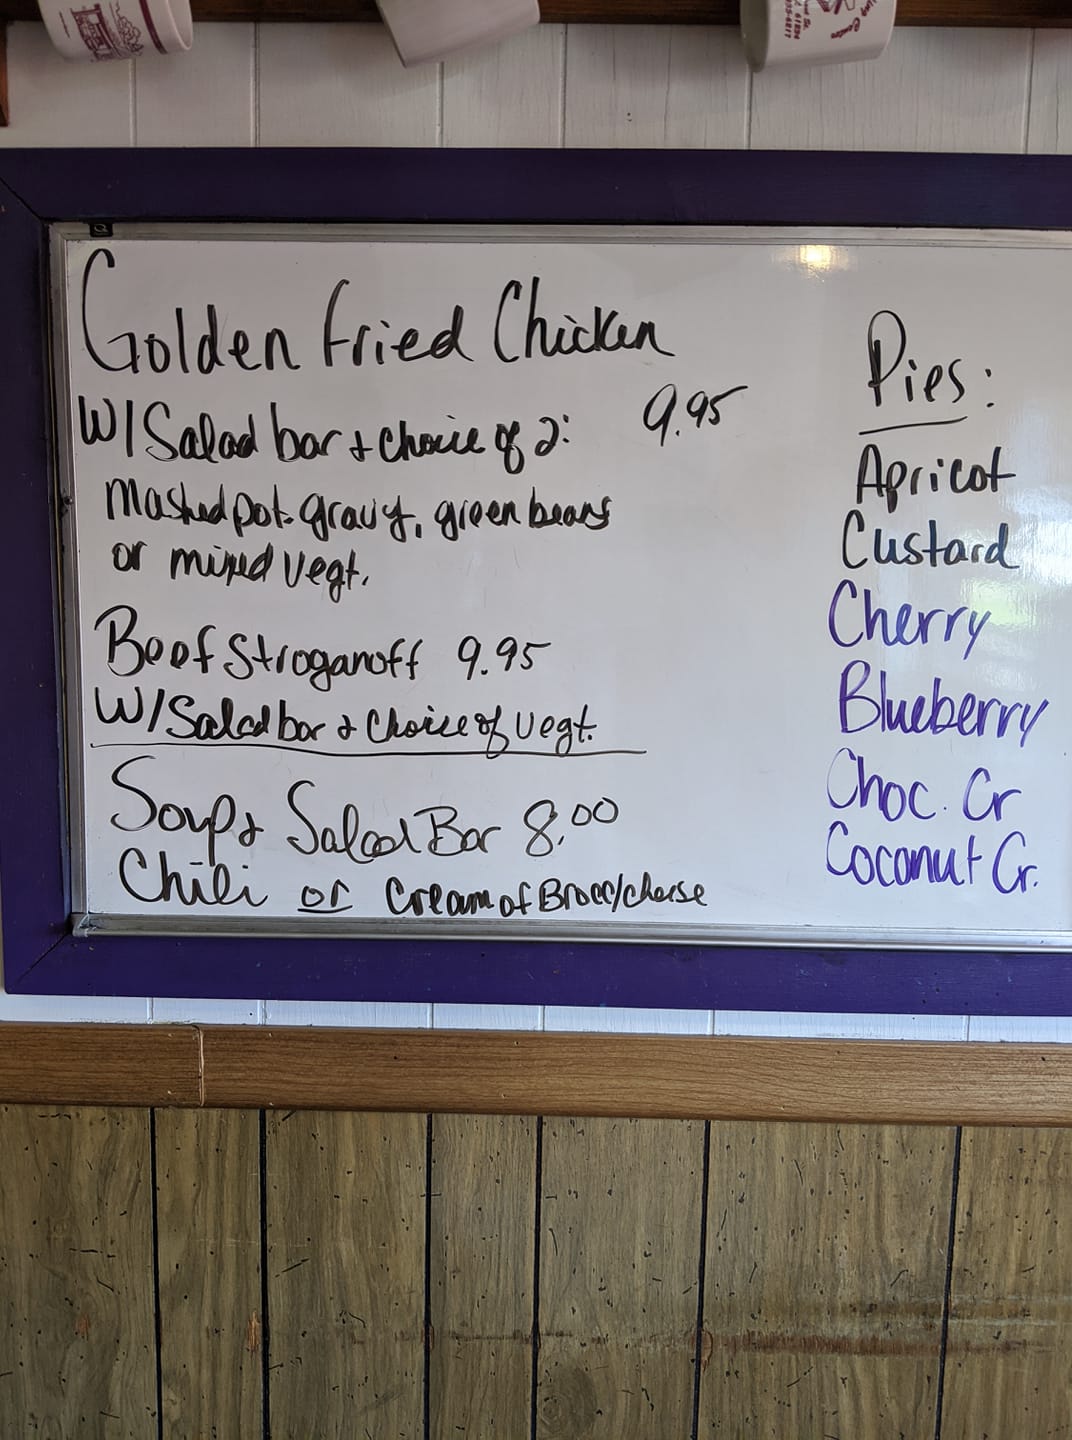 Golden Fried Chicken
W/ Salad bar + choice of 2: 9.95
Mashed pot. gravy, green beans
or mixed vegt.
Beef Stroganoff 9.95
W/ Salad bar + choice of vegt.
Soup + Salad Bar 8.00
Chili or Cream of Brocc/cheese
Pies:
Apricot
Custard
Cherry
Blueberry
Choc. Cr
Coconut Cr.